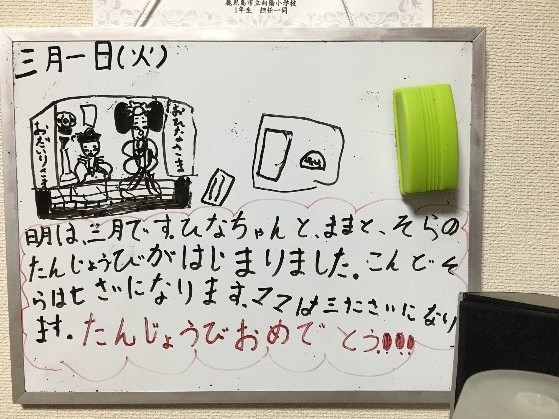 鹿児島市立向陽小学校
1年生 担任一同
三月一日(火)
おだいりさま
おひなさま
明は、三月です。ひなちゃんと、ままと、そらの
たんじょうびがはじまりました。こんどそ
らは七さいになります。ママは三たさいになり
ます。たんじょうびおめでとう!!!